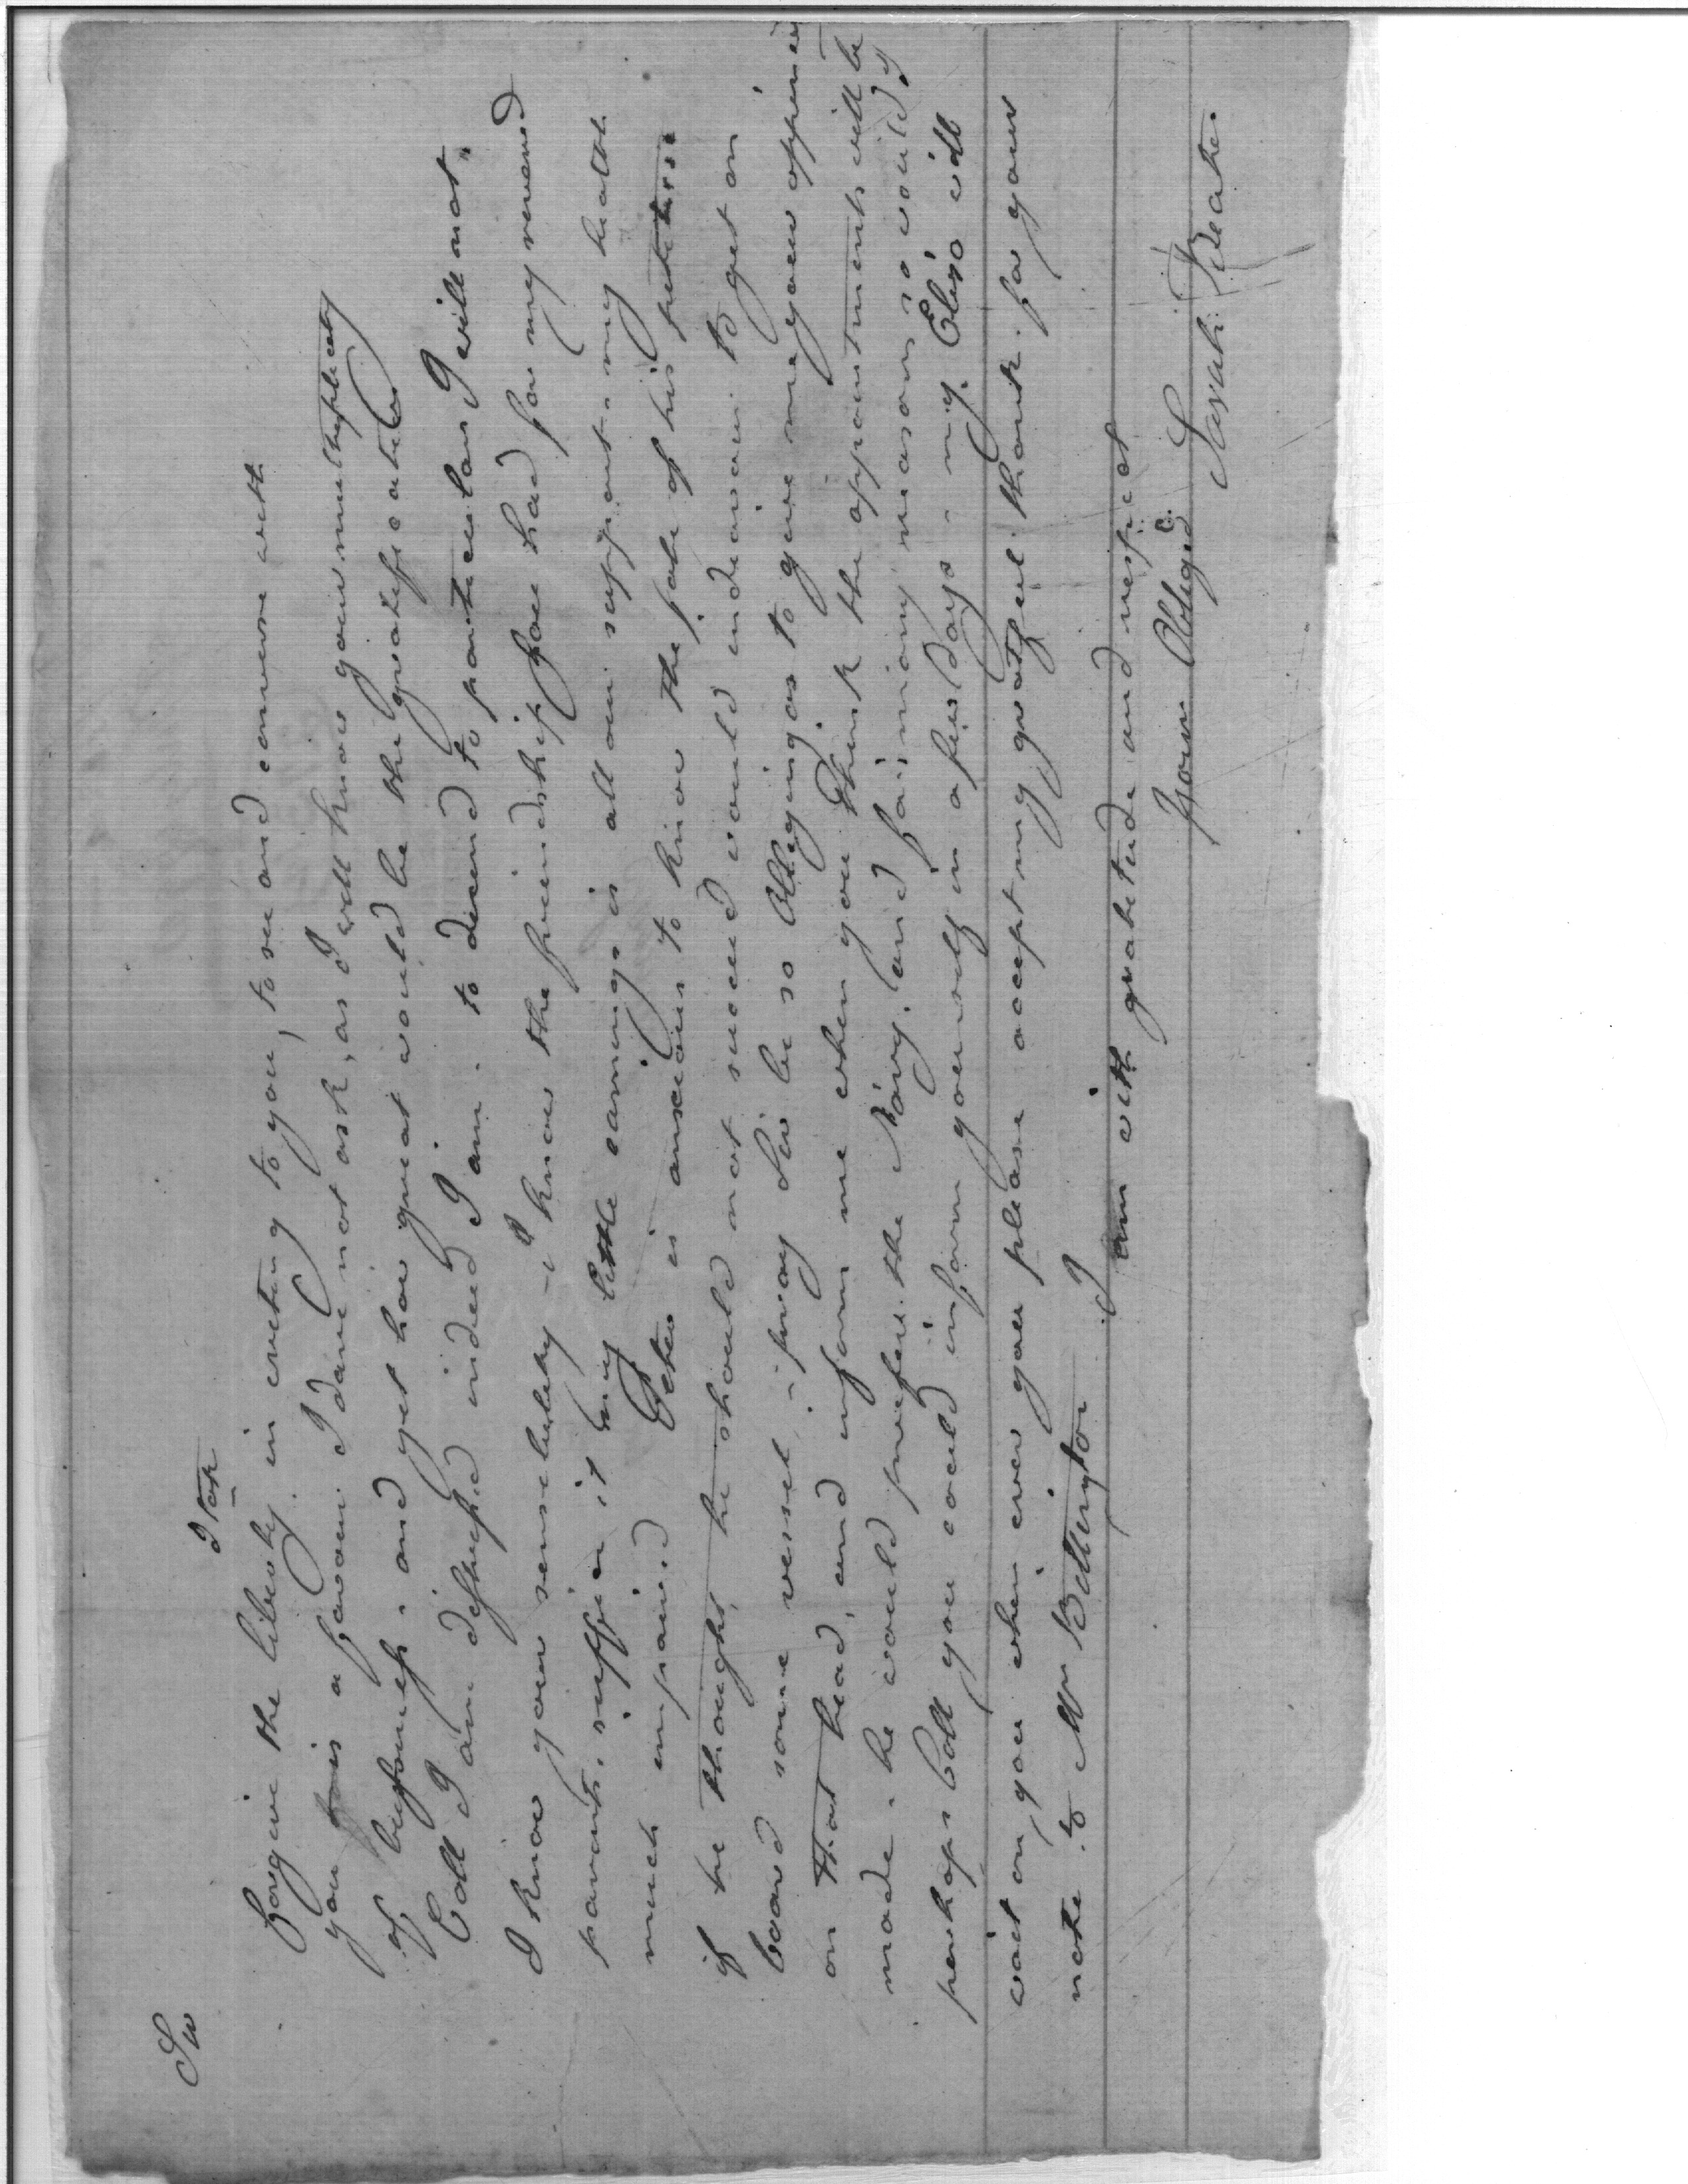 Sir
I take
Forgive the liberty in writing to you, to see and converse with
you is a favour I dare not ask, as I well know your multiplicity
of business. and yet how great would be the gratification
Coll I am distressed indeed I am. to descend to particulars I will not.
I know your sensibility - I know the friendship you had for my revered
parents. suffice it my little earnings is all our support. my health
much impaired Peter is anxious to know the fate of his petition
if he thought he should not succeed would endeavour to get on
board some vessel. - pray Sir be so Obliging as to give me your opinion
on that head, and inform me when you think the appointments will be
made. he would prefer the Navy. and for many reasons so would I
perhaps Coll you could inform yourself in a few days - my Eliza will
wait on you when ever you please accept my gratefull thanks for your
note to Mr Billington
I am with gratitude and respect
Your Obliged
Sarah Beates